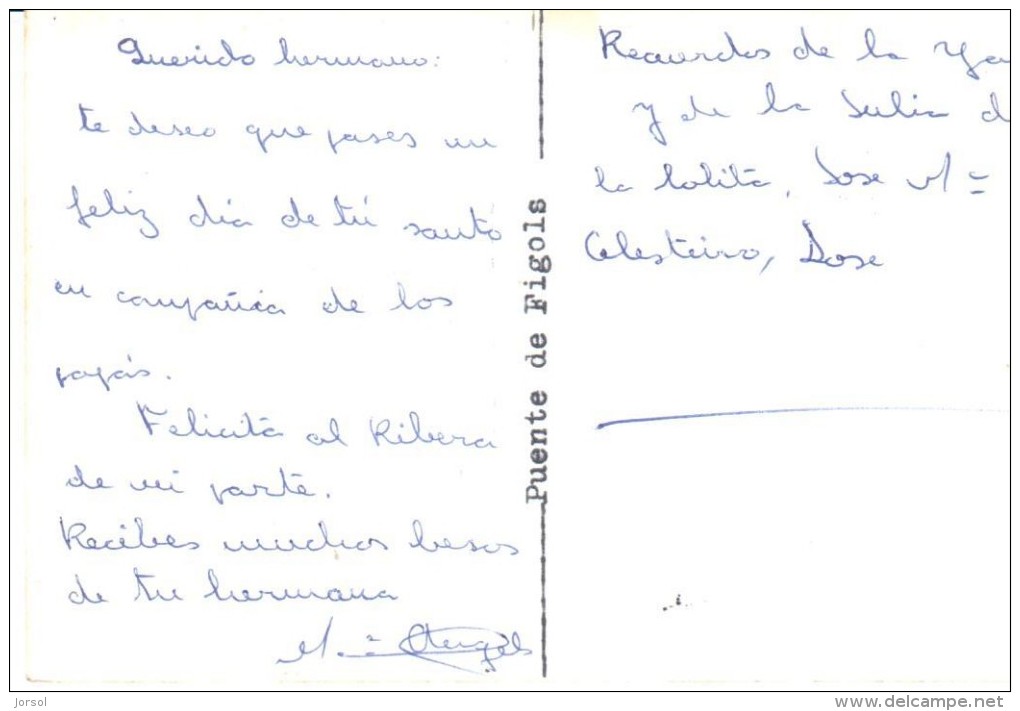 Querido hermano:
te deseo que pases un
feliz día de tú santo
en compañia de los
papás.
Felicita al Ribera
de mi parte.
Recibes muchos besos
de tu hermana
Mª Angels
Puente de Figols
Recuerdos de la Ya
y de la Julia d
la lolita, Jose Mª
Celesteiro, Jose
Jorsol
www.delcampe.net